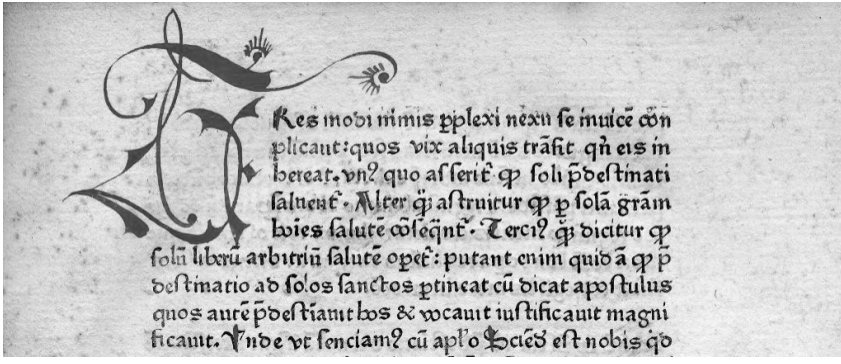 TRes modi nimis ꝑplexi nexu se inuicē con
plicant: quos vix aliquis trāsit qn̄ eis in
hereat. vnꝰ quo asserit̄ ꝙ soli p̄destinati
saluent̄. Alter q̄ astruitur ꝙ ꝑ solā grām
hoīes salutē cōseq̄nt̄. Terciꝰ q̄ dicitur ꝙ
solū liberū arbitriū salutē oꝑet̄: putant enim quidā ꝙ p̄
destinatio ad solos sanctos ꝑtineat cū dicat apostulus
quos autē p̄destīauit hos & vocauit iustificauit magni
ficauit. Vnde vt senciamꝰ cū apl̄o Sciēd̄ est nobis qd̄